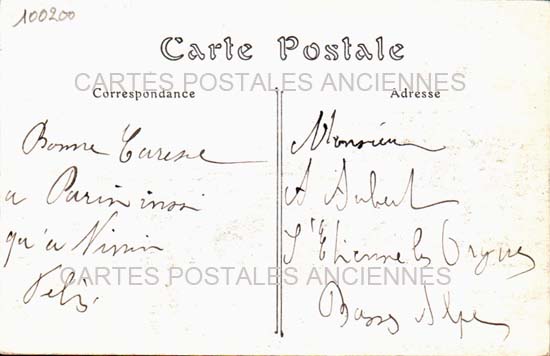 100200
Carte Postale
CARTES POSTALES ANCIENNES
Correspondance
Adresse
Bonne Caresse
a Parin insi
qu'a Ninin
Felix
Monsieur
A Aubert
St Etienne les Orgues
Basses Alpes
CARTES POSTALES ANCIENNES